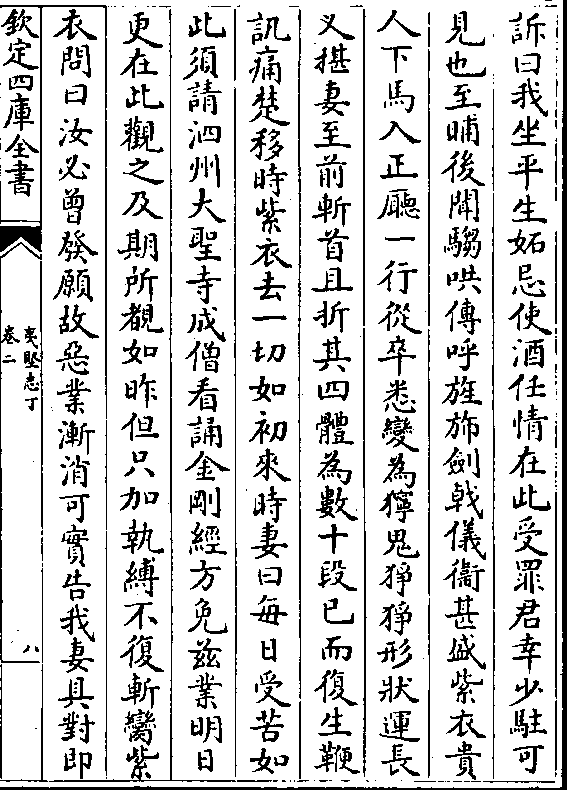 訴曰我坐平生妬忌使酒任情在此受罪君幸少駐可
見也至晡後聞騶哄傳呼旌斾劍戟儀衞甚盛紫衣貴
人下馬入正廳一行從卒悉變為獰鬼猙猙形狀運長
乂揕妻至前斬首且折其四體為數十段已而復生鞭
訊痛楚移時紫衣去一切如初來時妻曰每日受苦如
此須請泗州大聖寺成僧看誦金剛經方免兹業明日
更在此觀之及期所覩如昨但只加執縛不復斬臠紫
衣問曰汝必曾發願故惡業漸消可實告我妻具對即
欽定四庫全書
夷堅志丁
卷二
八